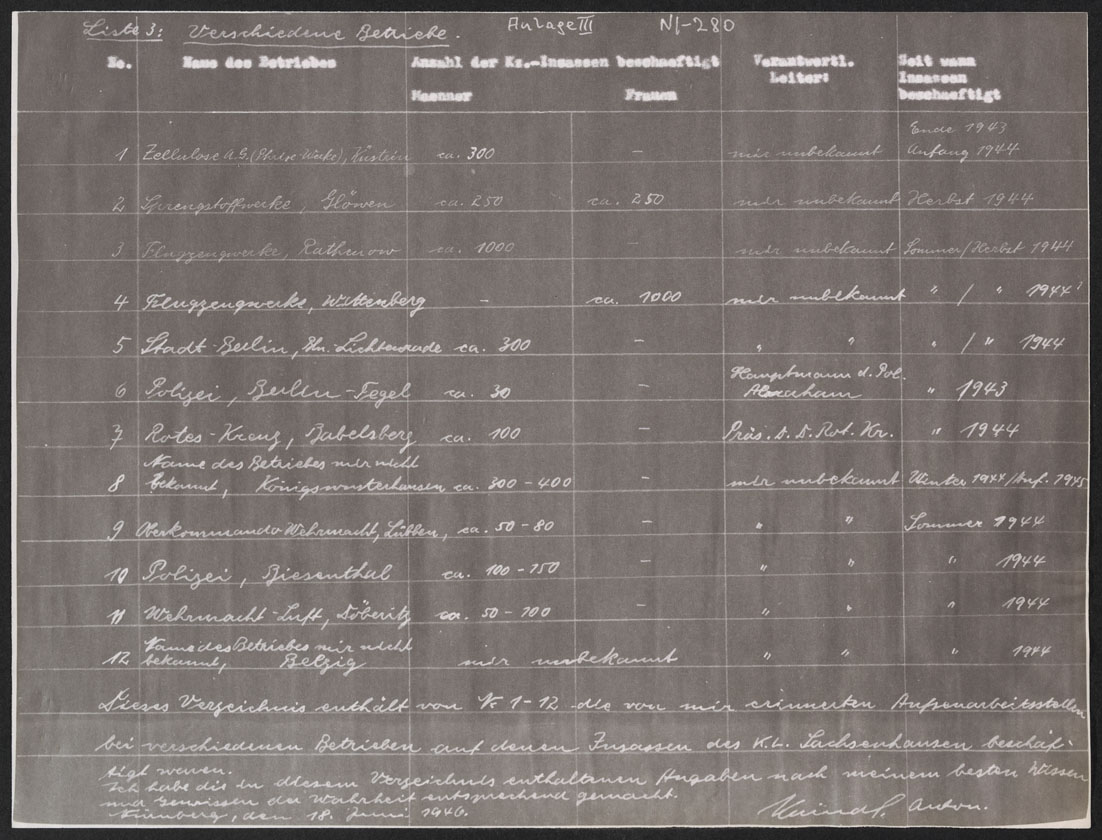 Liste 3: Verschiedene Betriebe. Anlage III NI-280
No. Name des Betriebes Anzahl der Kz.-Insassen beschaeftigt Verantwortl. Leiter: Seit wann Insassen beschaeftigt
Maenner Frauen
1 Zellulose A.G. (Phrix-Werke), Küstrin ca. 300 – mir unbekannt Ende 1943 Anfang 1944
2 Sprengstoffwerke, Glöwen ca. 250 ca. 250 mir unbekannt Herbst 1944
3 Flugzeugwerke, Rathenow ca. 1000 – mir unbekannt Sommer/Herbst 1944
4 Flugzeugwerke, Wittenberg – ca. 1000 mir unbekannt " / " 1944
5 Stadt-Berlin, Bln. Lichterade ca. 300 – " " " / " 1944
6 Polizei, Berlin-Tegel ca. 30 – Hauptmann d. Pol. Abraham " 1943
7 Rotes-Kreuz, Babelsberg ca. 100 – Präs. D. D. Rot. Kr. " 1944
Name des Betriebes mir nicht
8 bekannt, Königswusterhausen ca. 300-400 – mir unbekannt Winter 1944/Anf. 1945
9 Oberkommando Wehrmacht, Lübben, ca. 50-80 – " " Sommer 1944
10 Polizei, Biesenthal ca. 100-150 – " " " 1944
11 Wehrmacht-Luft, Döberitz ca. 50-100 – " " " 1944
Name des Betriebes mir nicht
12 bekannt, Belzig mir unbekannt " " " 1944
Dieses Verzeichnis enthält von Nr 1-12 die von mir erinnerten Aussenarbeitsstellen
bei verschiedenen Betrieben auf denen Insassen des K.L. Sachsenhausen beschäf-
tigt waren.
Ich habe die in diesem Verzeichnis enthaltenen Angaben nach meinem besten Wissen
und Gewissen der Wahrheit entsprechend gemacht.
Nürnberg, den 18. Juni 1946. Kaindl Anton.